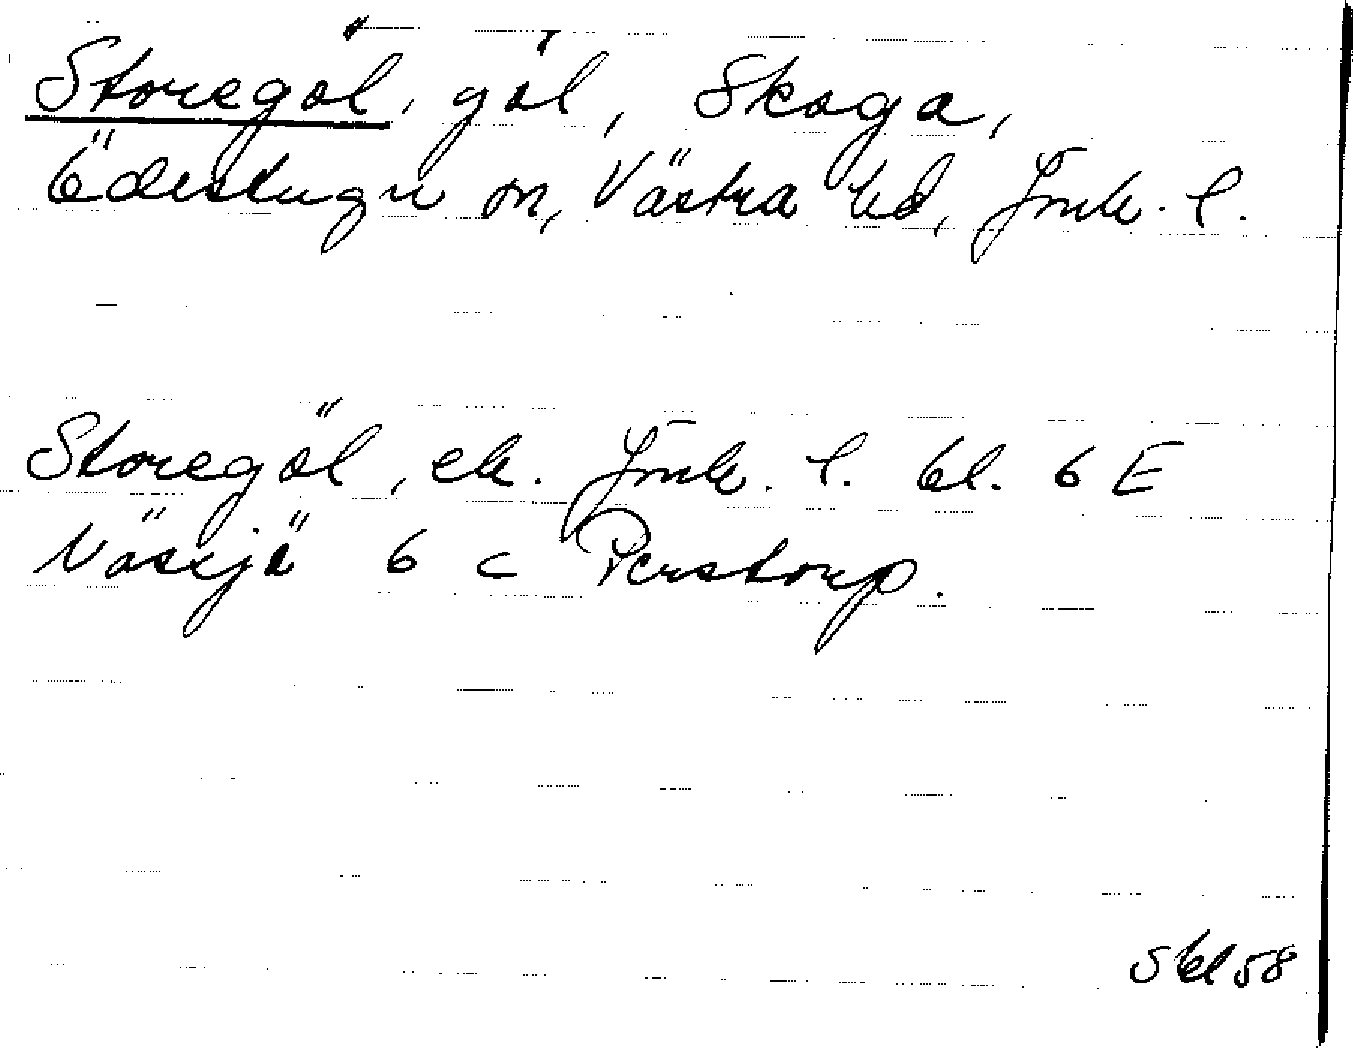 Storegöl, göl, Skoga,
Ödestugu sn, Västra hd, Jönk. l.
Storegöl, ek. Jönk. l. bl. 6 E
Nässjö 6 c Perstorp.
Skl 58